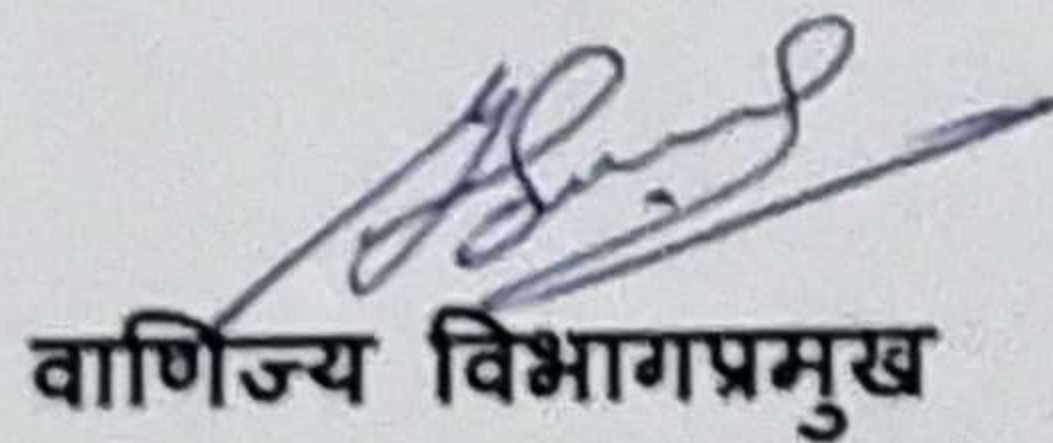 वाणिज्य विभागप्रमुख